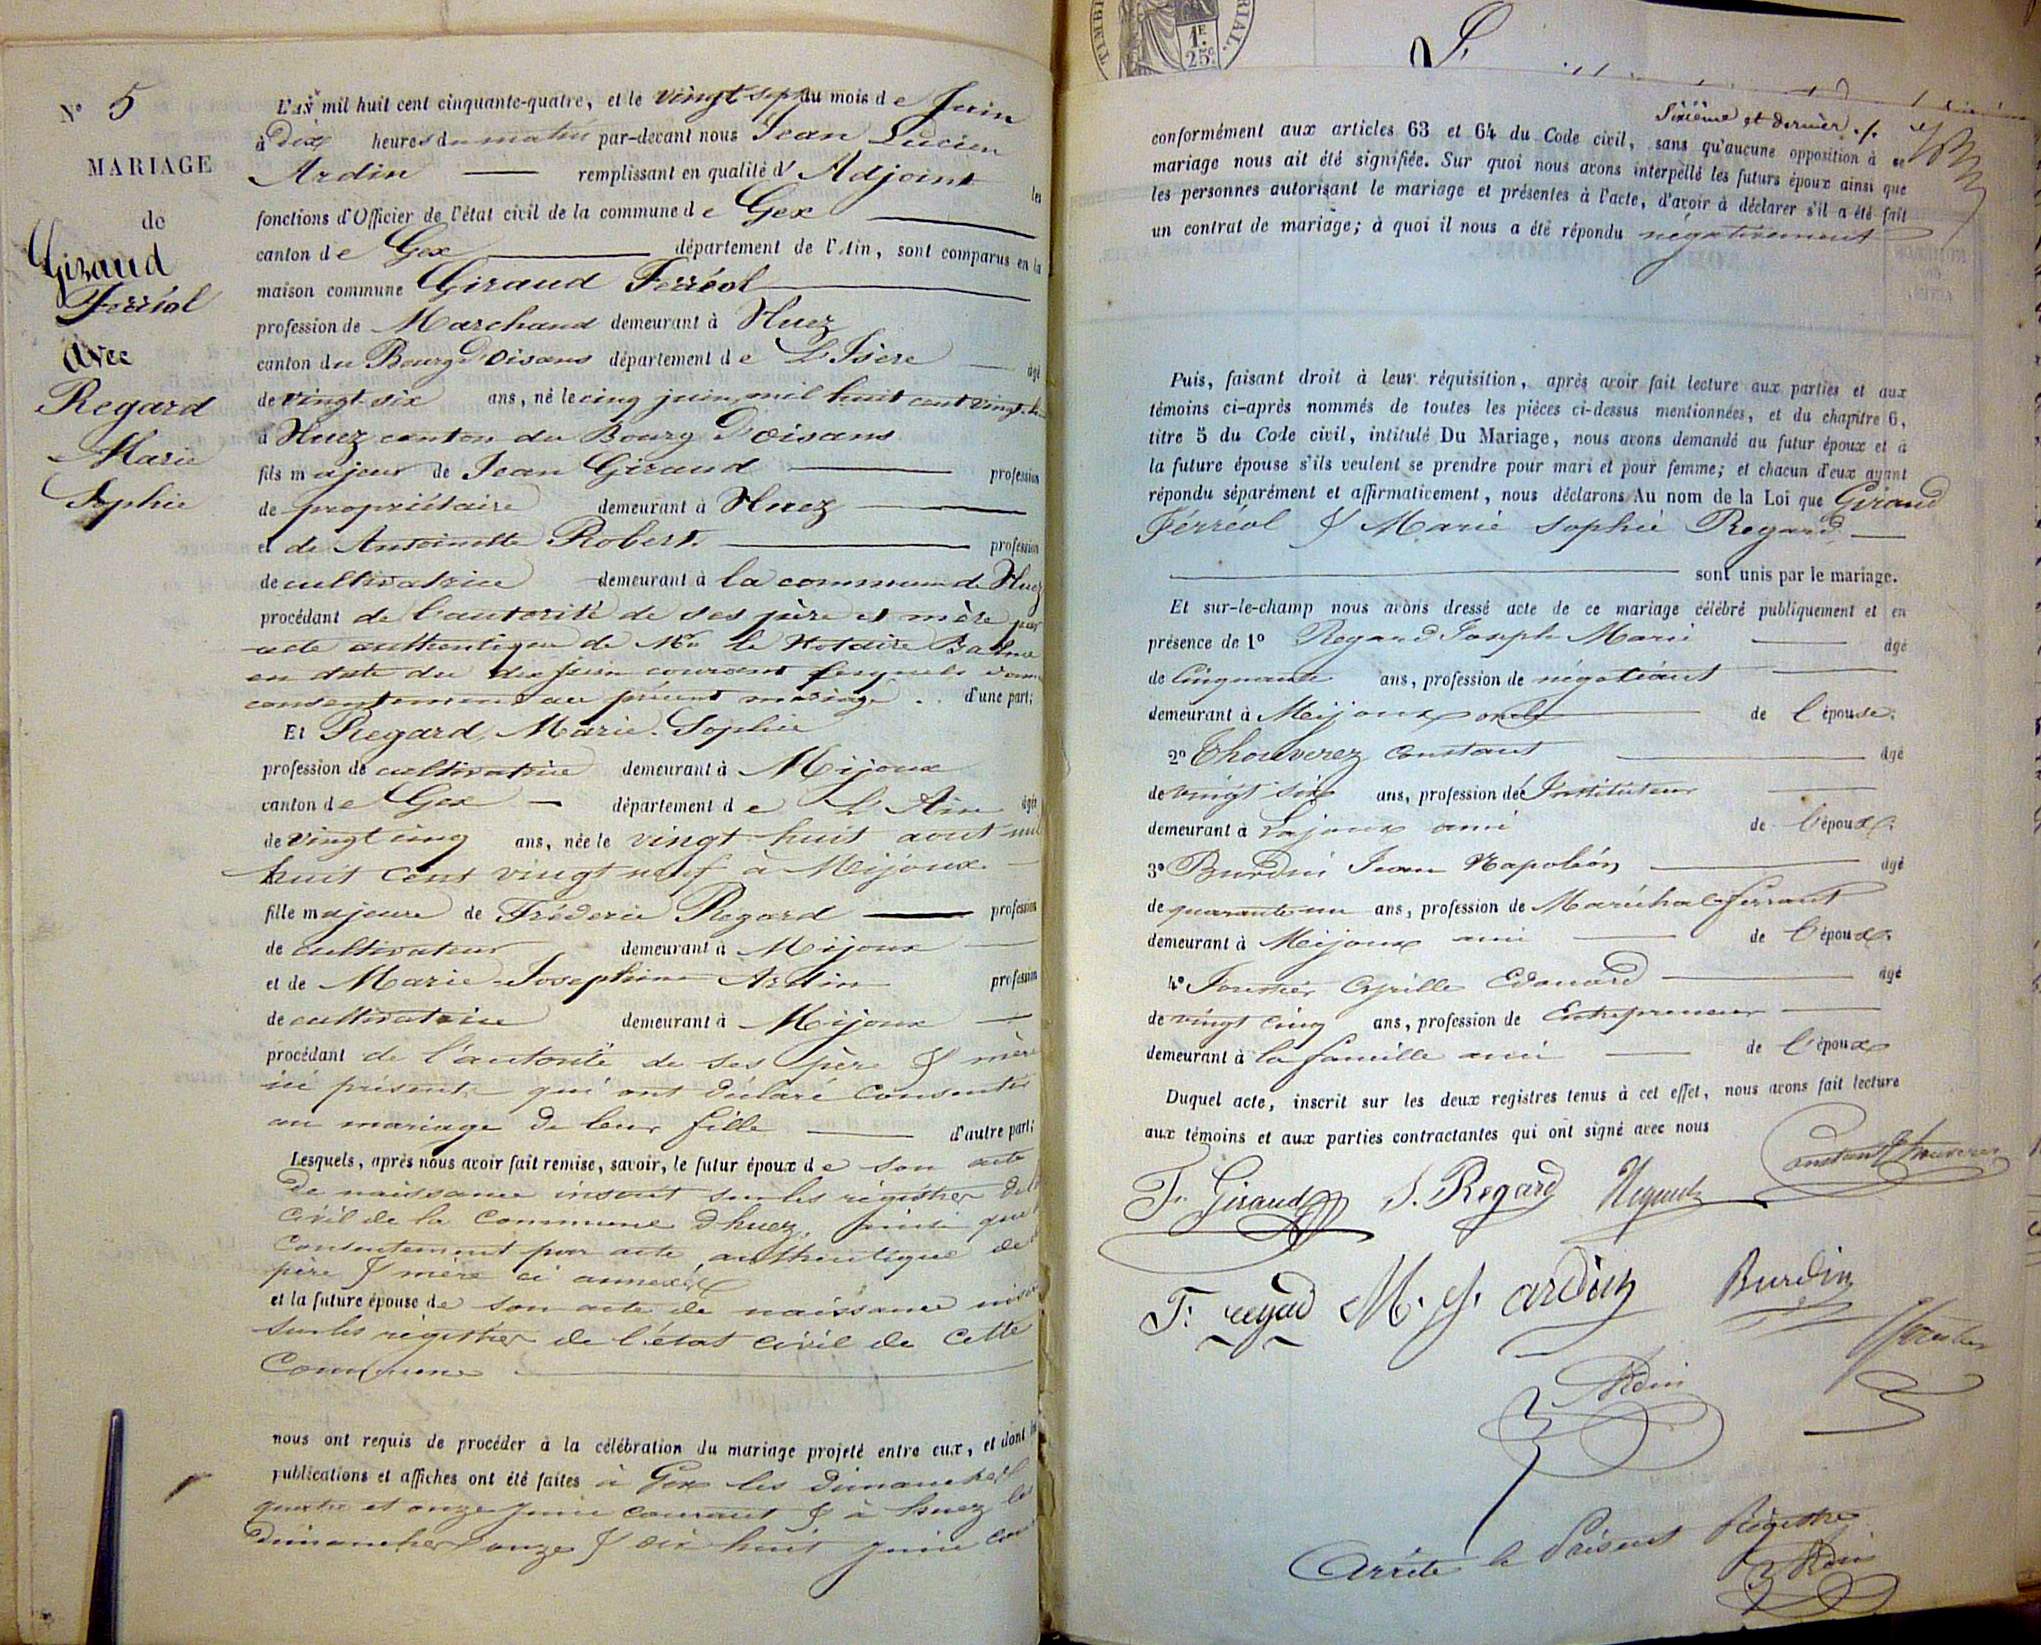 N° 5
MARIAGE
de
Giraud
Ferréol
avec
Regard
Marie
Sophie
L'an mil huit cent cinquante-quatre, et le vingt sept du mois de Juin
à dix heures du matin par-devant nous Jean Lucien
Ardin remplissant en qualité d'Adjoint les
fonctions d'Officier de l'état civil de la commune de Gex
canton de Gex département de l'Ain, sont comparus en la
maison commune Giraud Ferréol
profession de Marchand demeurant à Huez
canton du Bourg d'oisans département de L'Isère âgé
de vingt six ans, né le cinq juin mil huit cent vingt
à Huez canton du Bourg d'oisans
fils majeur de Jean Giraud profession
de propriétaire demeurant à Huez
et de Antoinette Robert profession
de cultivatrice demeurant à la commune de Huez
procédant de l'autorité de ses père et mère par
acte authentique de Me le Notaire Balme
en date du dix juin courant lesquels
consentement au présent mariage d'une part;
Et Regard Marie Sophie
profession de cultivatrice demeurant à Mijoux
canton de Gex département de L'Ain âgée
de vingt cinq ans, née le vingt huit aout mil
huit cent vingt neuf à Mijoux
fille majeure de Fréderic Regard profession
de cultivateur demeurant à Mijoux
et de Marie Josephine Ardin profession
de cultivatrice demeurant à Mijoux
procédant de l'autorité de ses père & mère
ici présents qui ont déclaré consentir
au mariage de leur fille d'autre part;
Lesquels, après nous avoir fait remise, savoir, le futur époux de son acte
de naissance inscrit sur les régistres de
civil de la Commune d'huez, ainsi que
consentement par acte authentique de
père & mère ci annexé
et la future épouse de son acte de naissance
sur les régistres de l'état civil de cette
Commune
nous ont requis de procéder à la célébration du mariage projeté entre eux, et dont les
publications et affiches ont été faites à Gex les dimanches
quatre et onze juin courant & à huez les
dimanches onze & dix huit juin
1F.
25c.
Sixième et dernier
conformément aux articles 63 et 64 du Code civil, sans qu'aucune opposition à ce
mariage nous ait été signifiée. Sur quoi nous avons interpellé les futurs époux ainsi que
les personnes autorisant le mariage et présentes à l'acte, d'avoir à déclarer s'il a été fait
un contrat de mariage; à quoi il nous a été répondu négativement
Puis, faisant droit à leur réquisition, après avoir fait lecture aux parties et aux
témoins ci-après nommés de toutes les pièces ci-dessus mentionnées, et du chapitre 6,
titre 5 du Code civil, intitulé Du Mariage, nous avons demandé au futur époux et à
la future épouse s'ils veulent se prendre pour mari et pour femme; et chacun d'eux ayant
répondu séparément et affirmativement, nous déclarons Au nom de la Loi que Giraud
Férréol & Marie Sophie Regard
sont unis par le mariage.
Et sur-le-champ nous avons dressé acte de ce mariage célébré publiquement et en
présence de 1° Regard Joseph Marie âgé
de Cinquante ans, profession de négotiant
demeurant à Mijoux oncle de l'épouse.
2° Chouverez Constant âgé
de vingt six ans, profession de Instituteur
demeurant à Lajoux ami de l'époux.
3° Burdin Jean Napoléon âgé
de quarante un ans, profession de Maréchal ferrant
demeurant à Mijoux ami de l'époux.
4° Cyrille Edouard âgé
de vingt cinq ans, profession de Entrepreneur
demeurant à la faucille ami de l'époux
Duquel acte, inscrit sur les deux registres tenus à cet effet, nous avons fait lecture
aux témoins et aux parties contractantes qui ont signé avec nous
F. Giraud S. Regard Constant
F. regad M. J. ardin Burdin
Ardin
Arrêté le Présent Régistre
Ardin